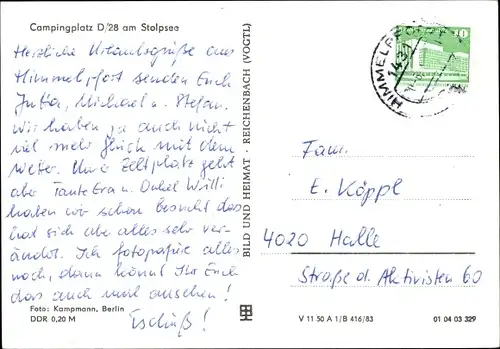 Campingplatz D/28 am Stolpsee
Herzliche Urlaubsgrüße aus
Himmelpfort senden Euch
Jutta, Michael u. Stefan.
Wir haben ja auch nicht
viel mehr Glück mit dem
Wetter. Unser Zeltplatz geht
aber Tante Erna u. Onkel Willi
haben wir schon besucht das
hat sich aber alles sehr ver-
ändert. Ich fotografiere alles
noch, dann könnt Ihr Euch
das auch mal ansehen!
Tschüß!
Foto: Kampmann, Berlin
DDR 0,20 M
BILD UND HEIMAT · REICHENBACH (VOGTL)
HIMMELPFORT
1431
10
Fam.
E. Köppl
4020 Halle
Straße d. Aktivisten 60
V 11 50 A 1/B 416/83
01 04 03 329